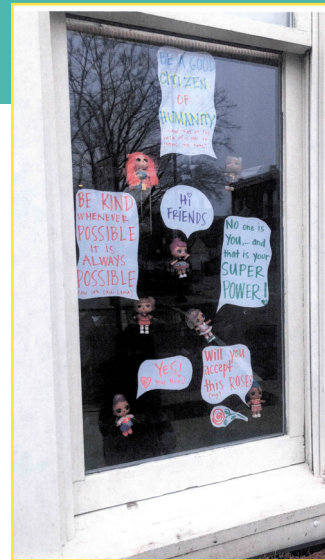 BE A GOOD
CITIZEN
OF
HUMANITY
Hi
FRIENDS
BE KIND
WHENEVER
POSSIBLE
IT IS
ALWAYS
POSSIBLE
No one is
You,... and
that is your
SUPER
POWER!
YES!
Will you
accept
this ROSE?